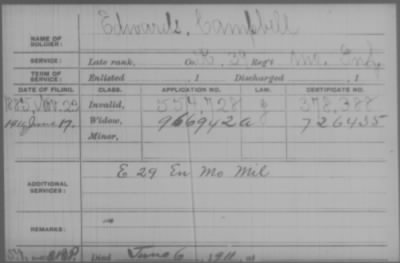 Edwards, Campbell
NAME OF SOLDIER:
SERVICE: Late rank, Co. K, 39 Reg't Mo. Inf.
TERM OF SERVICE: Enlisted , 1 Discharged , 1
DATE OF FILING. CLASS. APPLICATION NO. LAW. CERTIFICATE NO.
1885, Nov. 23 Invalid, 554,728 378,388
1911 June 17. Widow, 966942 a 726435
Minor,
ADDITIONAL SERVICES: E 29 En Mo Mil
REMARKS:
Died June 6, 1911, at